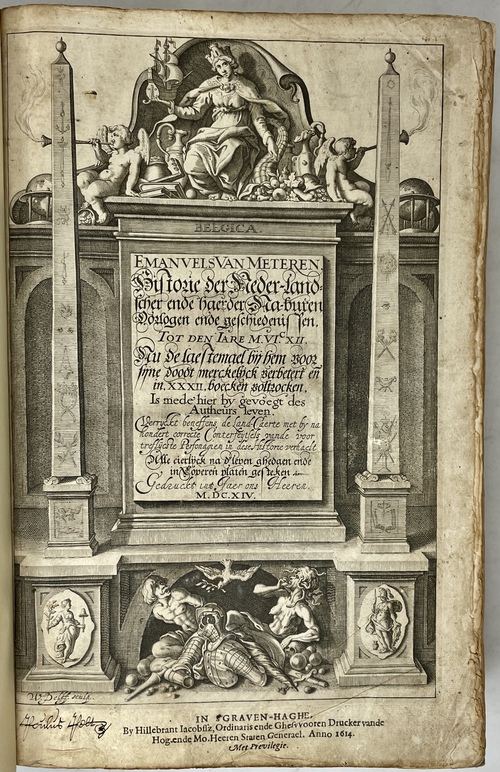 BELGICA.
EMANVELS VAN METEREN.
Historie der Neder-land-
scher ende haerder Na-buren
Oorlogen ende geschiedenissen.
TOT DEN IARE M.VIᶜXII.
Nu de laestemael by hem voor
sijne doodt merckelijck verbetert eñ
in .XXXII. boecken voltrocken.
Is mede hier by gevoegt des
Autheurs leven.
Verryckt beneffens de Land-Caerte met by na
hondert correcte Conterfeijtsels vande voor
treflijcste Personagien in dese Historie verhaelt
Alle cierlyck na d'leven ghedaen ende
in Coperen platen gesneken
Gedruckt int Jaer ons Heeren.
M.DC.XIV.
W. Delff sculp.
IN S'GRAVEN-HAGHE,
By Hillebrant Iacobssz, Ordinaris ende Ghesvvooren Drucker vande
Hog.ende Mo. Heeren Staten Generael. Anno 1614.
Met Previlegie.